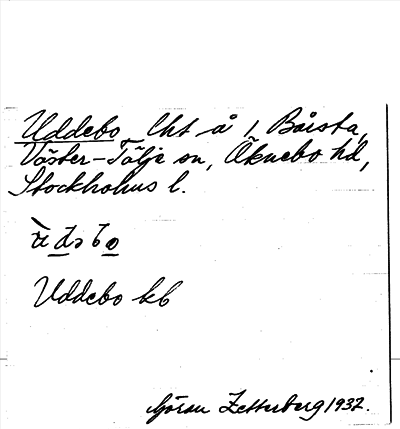 Uddebo lht å 1 Bårsta,
Väster-Tälje sn, Öknebo hd,
Stockholms l.
ù d ə b o
Uddebo kb
Göran Zetterberg 1932.